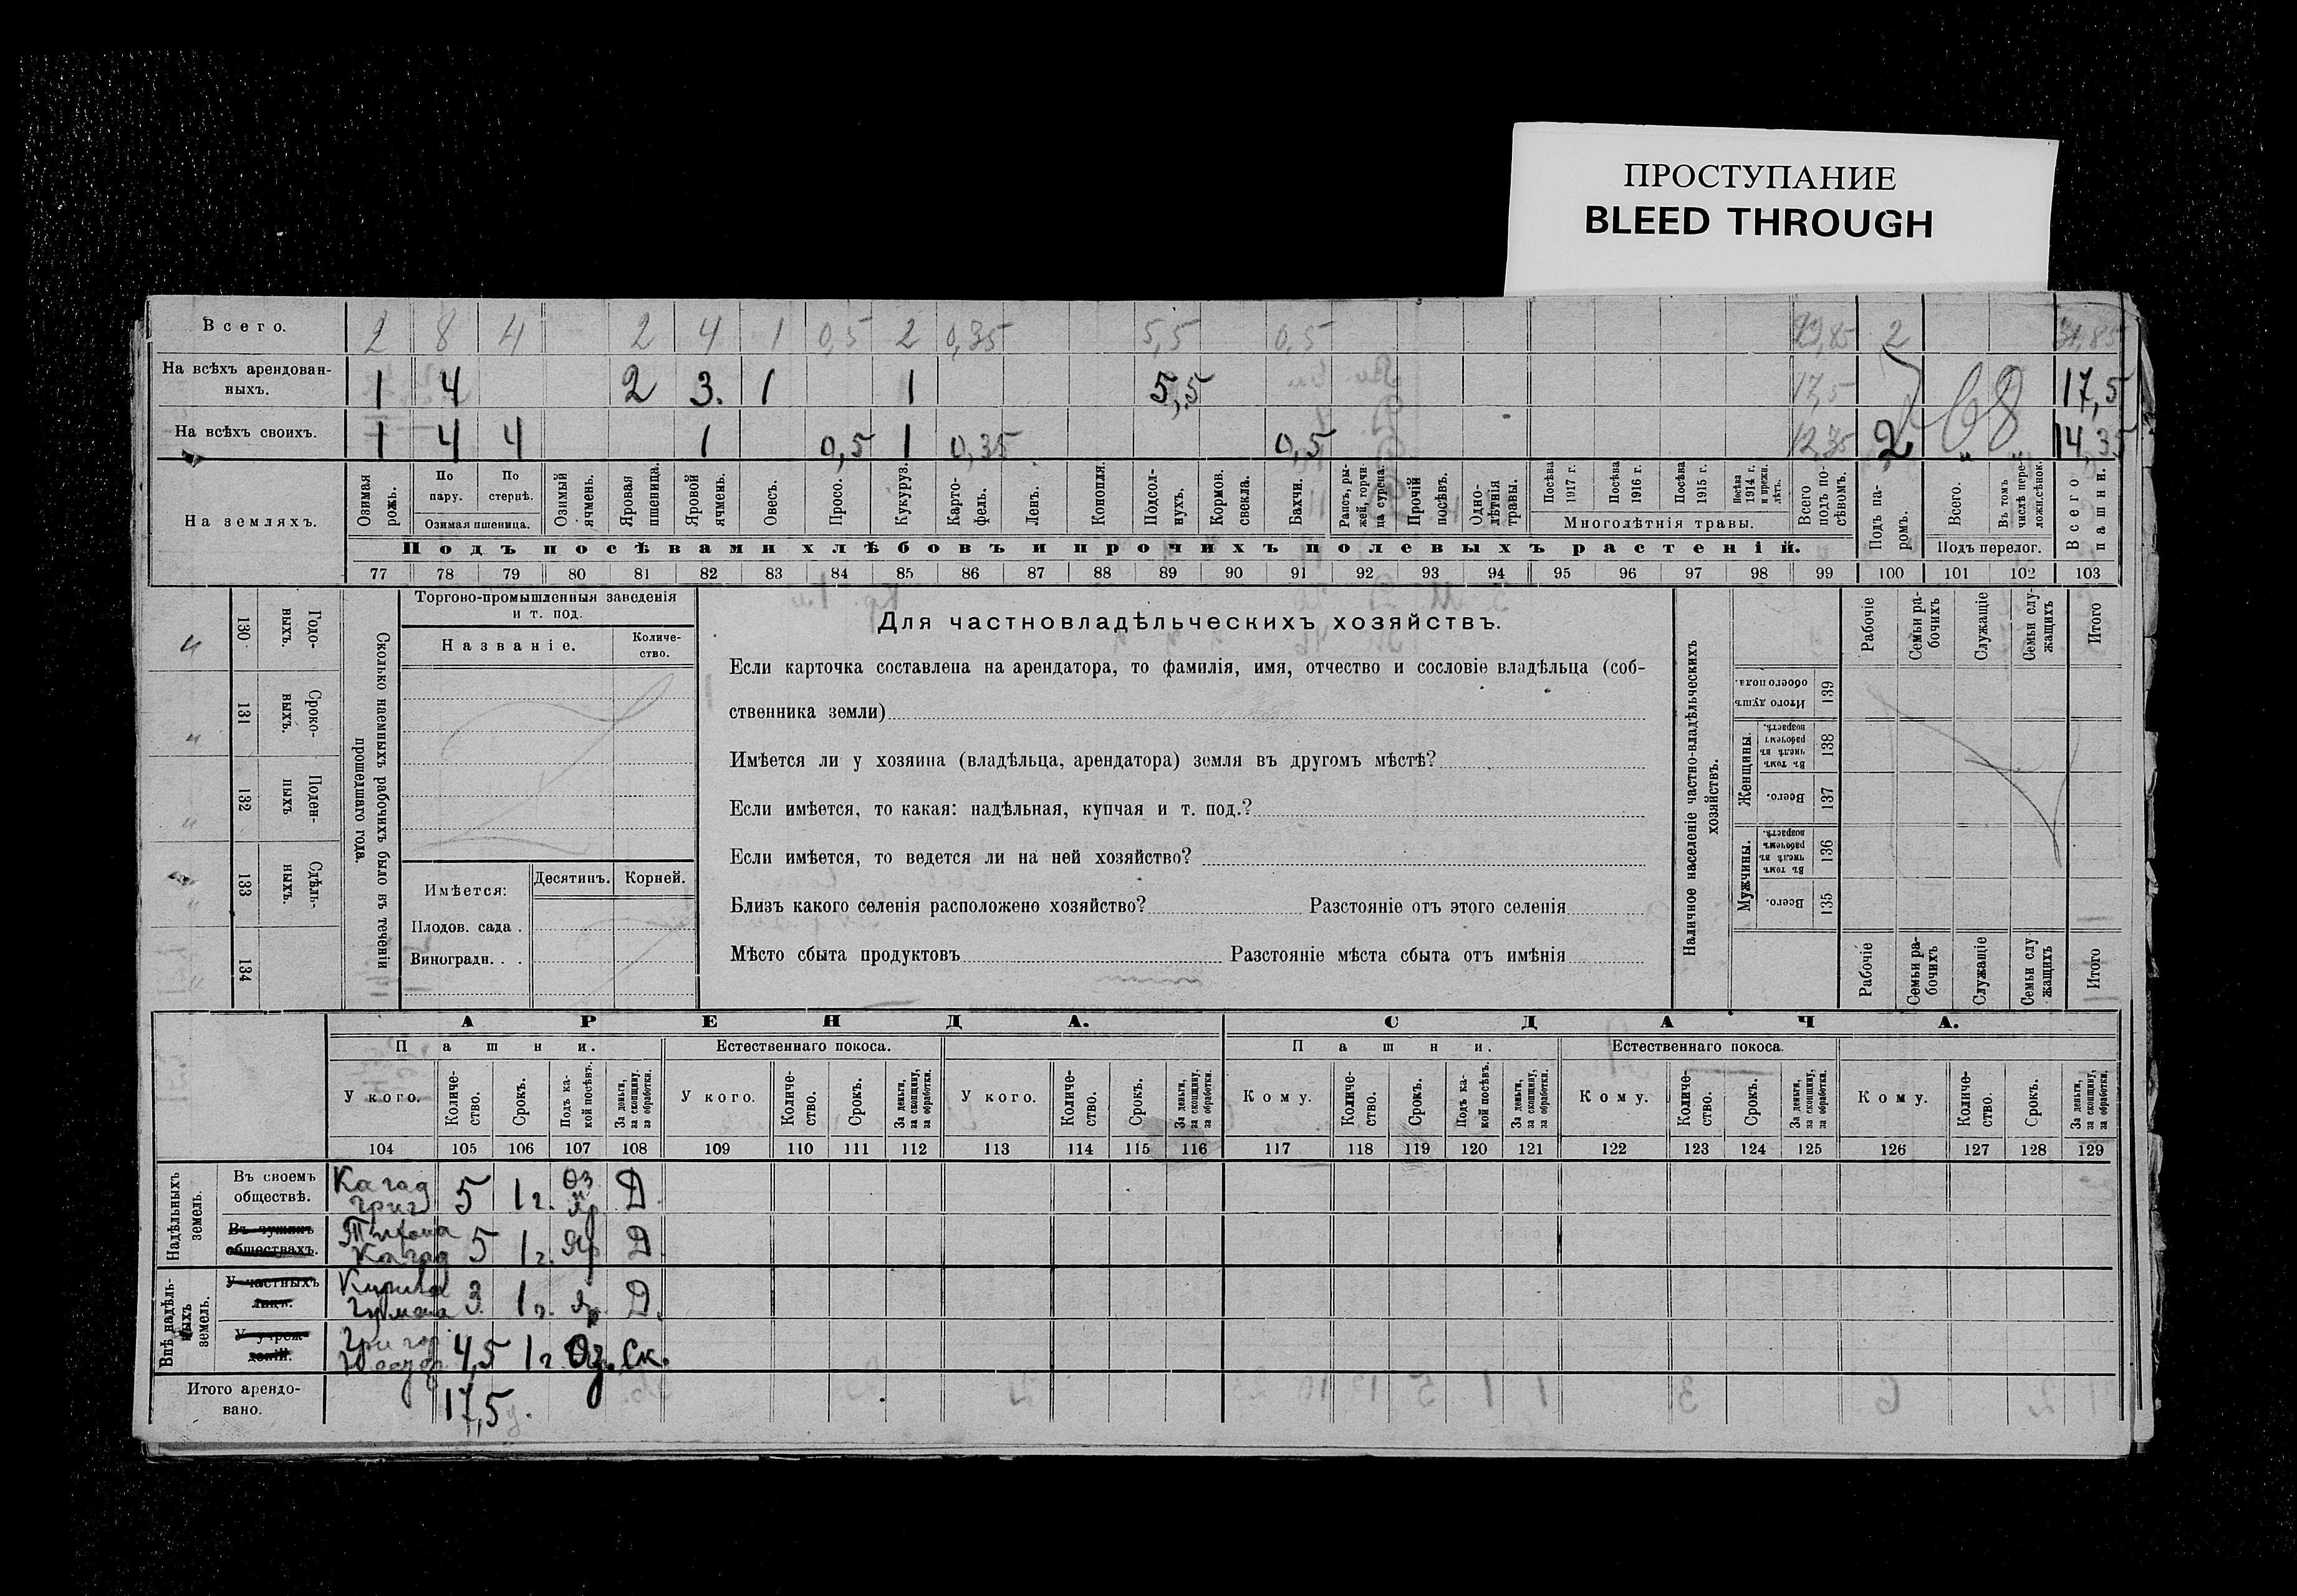 ПРОСТУПАНИЕ
BLEED THROUGH
Всего. 2 8 4 2 4 1 0,5 2 0,35 5,5 0,5 29,85 2 31,85
На всѣхъ арендован-
ныхъ. 1 4 2 3. 1 1 5,5 17,5 17,5
На всѣхъ своихъ. 1 4 4 1 0,5 1 0,35 0,5 12,35 2 " " 14,35
На земляхъ.
Озимая рожь.
По пару.
По стернѣ.
Озимая пшеница.
Озимый ячмень.
Яровая пшеница.
Яровой ячмень.
Овесъ.
Просо.
Кукуруз.
Карто-
фель.
Ленъ.
Конопля.
Подсол-
нухъ.
Кормов. свекла.
Бахчи.
Рапсъ, ры-
жей, горчи
ца сурепа.
Прочій посѣвъ.
Одно-
лѣтнія
травы.
Посѣва 1917 г.
Посѣва 1916 г.
Посѣва 1915 г.
Посѣва 1914 г. и прежн. лѣтъ.
Многолѣтнія травы.
Всего подъ по-
сѣвомъ.
Подъ па-
ромъ.
Всего.
Въ томъ числѣ пере-
ложн.сѣнок.
Подъ перелог.
Всего пашни.
Подъ посѣвами хлѣбовъ и прочихъ полевыхъ растеній.
77 78 79 80 81 82 83 84 85 86 87 88 89 90 91 92 93 94 95 96 97 98 99 100 101 102 103
Сколько наемныхъ рабочихъ было въ теченіи
прошедшаго года.
Годо-
выхъ.
130 "
Сроко-
выхъ.
131 "
Поден-
ныхъ
132 "
Сдѣль-
ныхъ.
133 "
134
Торгово-промышленныя заведенія
и т. под.
Названіе. Количе-
ство.
Имѣется: Десятинъ. Корней.
Плодов. сада .
Виноградн. . .
Для частновладѣльческихъ хозяйствъ.
Если карточка составлена на арендатора, то фамилія, имя, отчество и сословіе владѣльца (соб-
ственника земли)
Имѣется ли у хозяина (владѣльца, арендатора) земля въ другомъ мѣстѣ?
Если имѣется, то какая: надѣльная, купчая и т. под.?
Если имѣется, то ведется ли на ней хозяйство?
Близъ какого селенія расположено хозяйство? Разстояніе отъ этого селенія
Мѣсто сбыта продуктовъ Разстояніе мѣста сбыта отъ имѣнія
Наличное населеніе частно-владѣльческихъ
хозяйствъ.
Рабочіе
Семьи ра-
бочихъ
Служащіе
Семьи слу-
жащихъ
Итого
Итого душъ
обоего пола.
139
Женщины.
Въ томъ
числѣ въ
рабочемъ
возрастѣ.
138
Всего.
137
Мужчины.
Въ томъ
числѣ въ
рабочемъ
возрастѣ.
136
Всего.
135
Рабочіе
Семьи ра-
бочихъ
Служащіе
Семьи слу
жащихъ
Итого
АРЕНДА. СДАЧА.
Пашни. Естественнаго покоса. Пашни. Естественнаго покоса.
У кого.
Количе-
ство.
Срокъ.
Подъ ка-
кой посѣвъ.
За деньги,
за скопщину,
за обработки.
У кого.
Количе-
ство.
Срокъ.
За деньги,
за скопщину,
за обработки.
У кого.
Количе-
ство.
Срокъ.
За деньги,
за скопщину,
за обработки.
Кому.
Количе-
ство.
Срокъ.
Подъ ка-
кой посѣвъ.
За деньги,
за скопщину,
за обработки.
Кому.
Количе-
ство.
Срокъ.
За деньги,
за скопщину,
за обработки.
Кому.
Количе-
ство.
Срокъ.
За деньги,
за скопщину,
за обработки.
104 105 106 107 108 109 110 111 112 113 114 115 116 117 118 119 120 121 122 123 124 125 126 127 128 129
Надѣльныхъ
земель.
Въ своемъ
обществѣ. 5 1 г. Оз и Яр. Д.
Въ чужихъ
обществахъ. 5 1 г. Яр Д.
Внѣ надѣль-
ныхъ
земель.
У частныхъ
лицъ. 3 1 г. Яр. Д.
У учреж-
деній. 4,5 1 г. Оз. Ск.
Итого арендо-
вано. 17,5